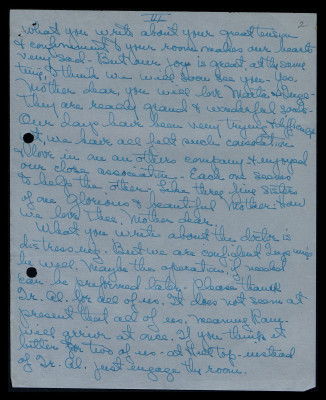 III 2
What you write about your great fatigue
& confinement to your room makes our hearts
very sad - But our joy is great at the same
time, to think we will soon see you - Yes,
Mother dear, you will love
They are really grand & wonderful souls -
Our days have been very trying & difficult
but, we have all felt such consolation
& love in one another's company & enjoyed
our close association - Each one seems
to help the other. Like three sisters
of one Glorious & beautiful Mother - how
we love Thee, Mother dear.
What you write about the doctor is
distressing. But we are confident
be well. Maybe the operation, if needed
can be performed later. Please thank
Dr. for all of us. It does not seem at
present that all of us, meaning
will arrive at once. If you think it
better for two of us - at instead
of Dr. just engage the room.